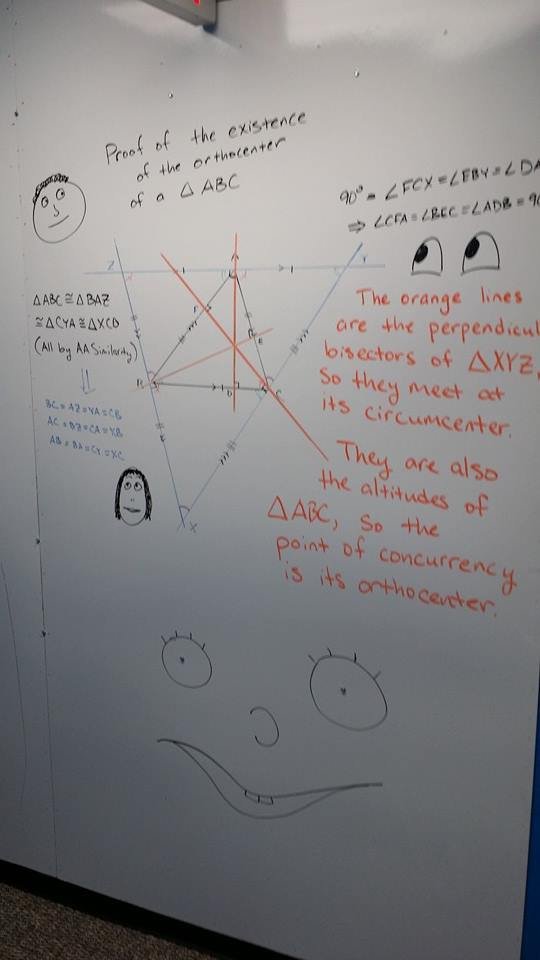 Proof of the existence
of the orthocenter
of a △ ABC
90° = ∠FCX = ∠EBY = ∠DA
⇒ ∠CFA = ∠BEC = ∠ADB = 90
△ABC ≅ △BAZ
≅ △CYA ≅ △XCB
(All by AA Similarity)
⇓
BC = AZ = YA = CB
AC = BZ = CA = XB
AB = BA = CY = XC
The orange lines
are the perpendicul
bisectors of △XYZ,
So they meet at
its circumcenter.
They are also
the altitudes of
△ABC, so the
point of concurrency
is its orthocenter.
Z
A
Y
F
E
B
D
C
X